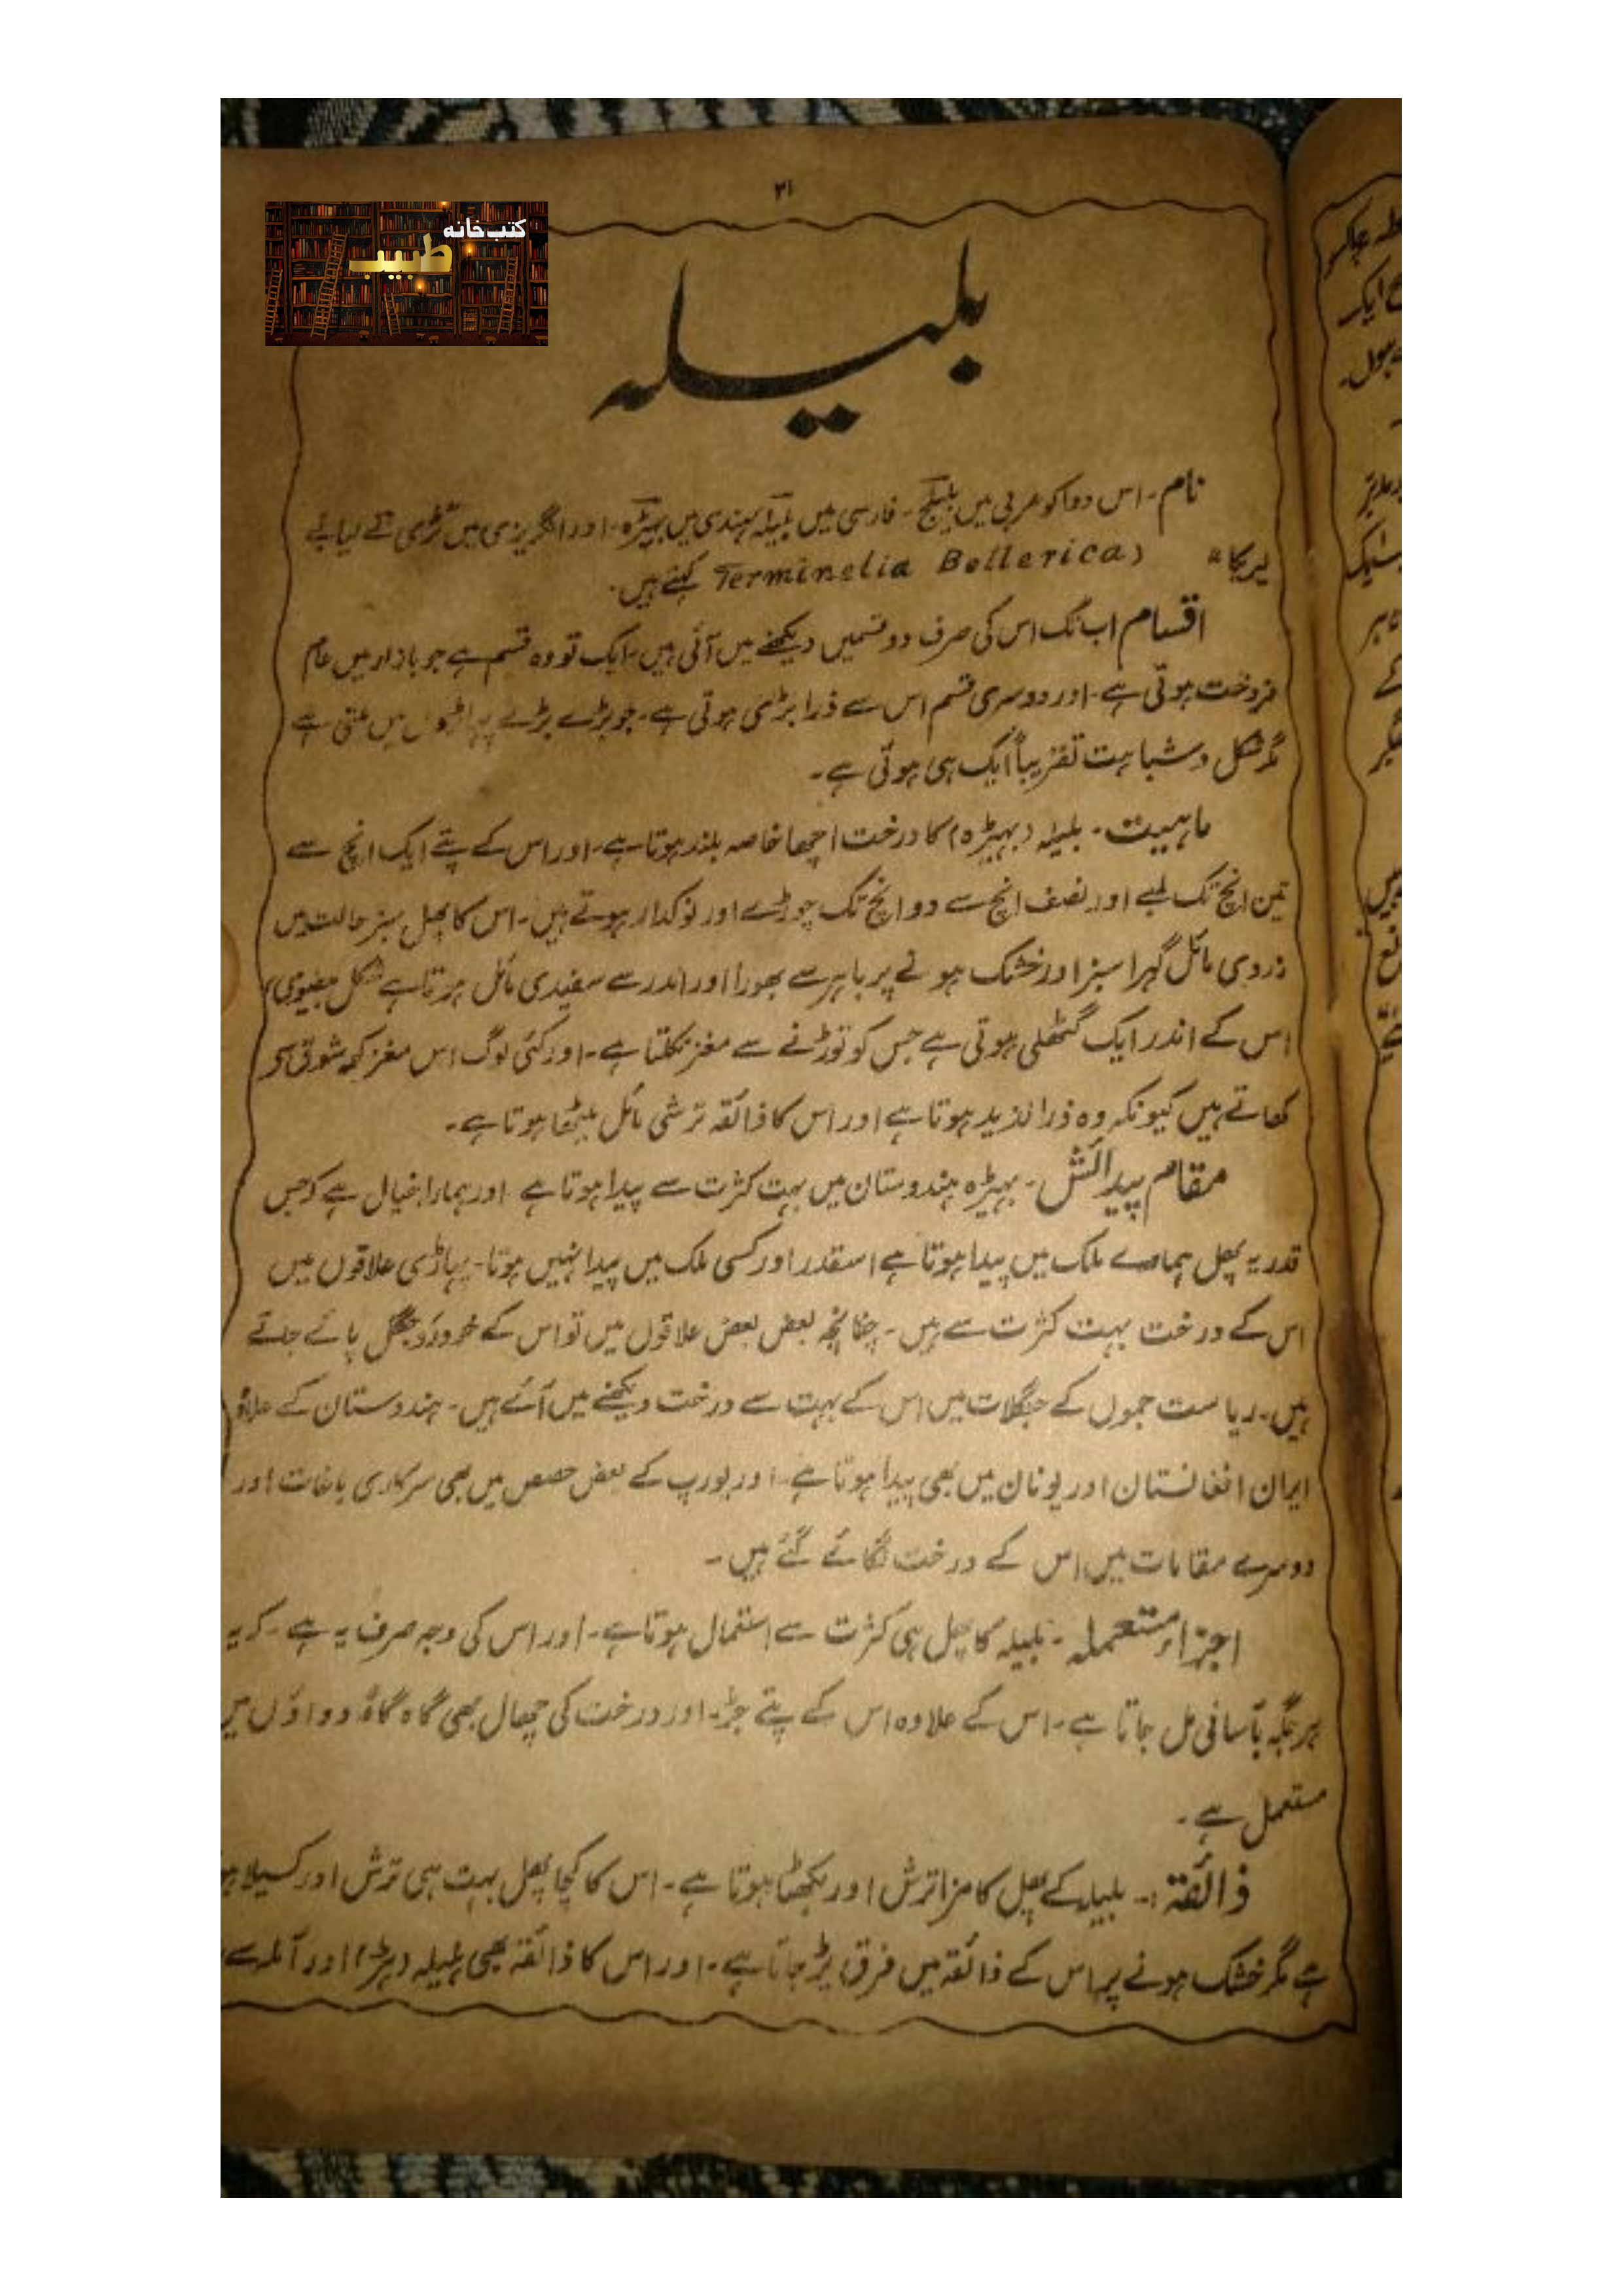 ۲۱
کتب خانہ
طبیب
بلیلہ
نام۔ اس دوا کو عربی میں بلیلج۔ فارسی میں بلیلہ ہندی میں بہیڑہ۔ اور انگریزی میں
(Terminelia Bellerica کہتے ہیں۔
اقسام اب تک اس کی صرف دو قسمیں دیکھنے میں آئی ہیں۔ ایک تو وہ قسم ہے جو بازار میں عام
فروخت ہوتی ہے۔ اور دوسری قسم اس سے ذرا بڑی ہوتی ہے۔ جو بڑے بڑے پہاڑوں میں ملتی ہے
مگر شکل و شباہت تقریباً ایک ہی ہوتی ہے۔
ماہیت۔ بلیلہ (بہیڑہ) کا درخت اچھا خاصہ بلند ہوتا ہے۔ اور اس کے پتے ایک انچ سے
تین انچ تک لمبے اور نصف انچ سے دو انچ تک چوڑے اور نوکدار ہوتے ہیں۔ اس کا پھل سبز حالت میں
زردی مائل گہرا سبز اور خشک ہونے پر باہر سے بھورا اور اندر سے سفیدی مائل ہوتا ہے شکل بیضوی
اس کے اندر ایک گٹھلی ہوتی ہے جس کو توڑنے سے مغز نکلتا ہے۔ اور کئی لوگ اس مغز کو شوق سے
کھاتے ہیں کیونکہ وہ ذرا لذیذ ہوتا ہے اور اس کا ذائقہ ترشی مائل میٹھا ہوتا ہے۔
مقام پیدائش۔ بہیڑہ ہندوستان میں بہت کثرت سے پیدا ہوتا ہے اور ہمارا خیال ہے کہ جس
قدر یہ پھل ہمارے ملک میں پیدا ہوتا ہے اسقدر اور کسی ملک میں پیدا نہیں ہوتا۔ پہاڑی علاقوں میں
اس کے درخت بہت کثرت سے ہیں۔ چنانچہ بعض بعض علاقوں میں تو اس کے خودرو جنگل پائے جاتے
ہیں۔ ریاست جموں کے جنگلات میں اس کے بہت سے درخت دیکھنے میں آئے ہیں۔ ہندوستان کے علاوہ
ایران افغانستان اور یونان میں بھی پیدا ہوتا ہے۔ اور یورپ کے بعض حصص میں بھی سرکاری باغات اور
دوسرے مقامات میں اس کے درخت لگائے گئے ہیں۔
اجزاء مستعملہ۔ بلیلہ کا پھل ہی کثرت سے استعمال ہوتا ہے۔ اور اس کی وجہ صرف یہ ہے۔ کہ یہ
ہر جگہ بآسانی مل جاتا ہے۔ اس کے علاوہ اس کے پتے جڑ۔ اور درخت کی چھال بھی گاہ گاہ دواؤں میں
مستعمل ہے۔
ذائقۃ:۔ بلیلہ کے پھل کا مزا ترش اور بکھٹا ہوتا ہے۔ اس کا کچا پھل بہت ہی ترش اور کسیلا
ہے مگر خشک ہونے پر اس کے ذائقہ میں فرق پڑ جاتا ہے۔ اور اس کا ذائقہ بھی ہلیلہ (ہڑ) اور آملہ سے